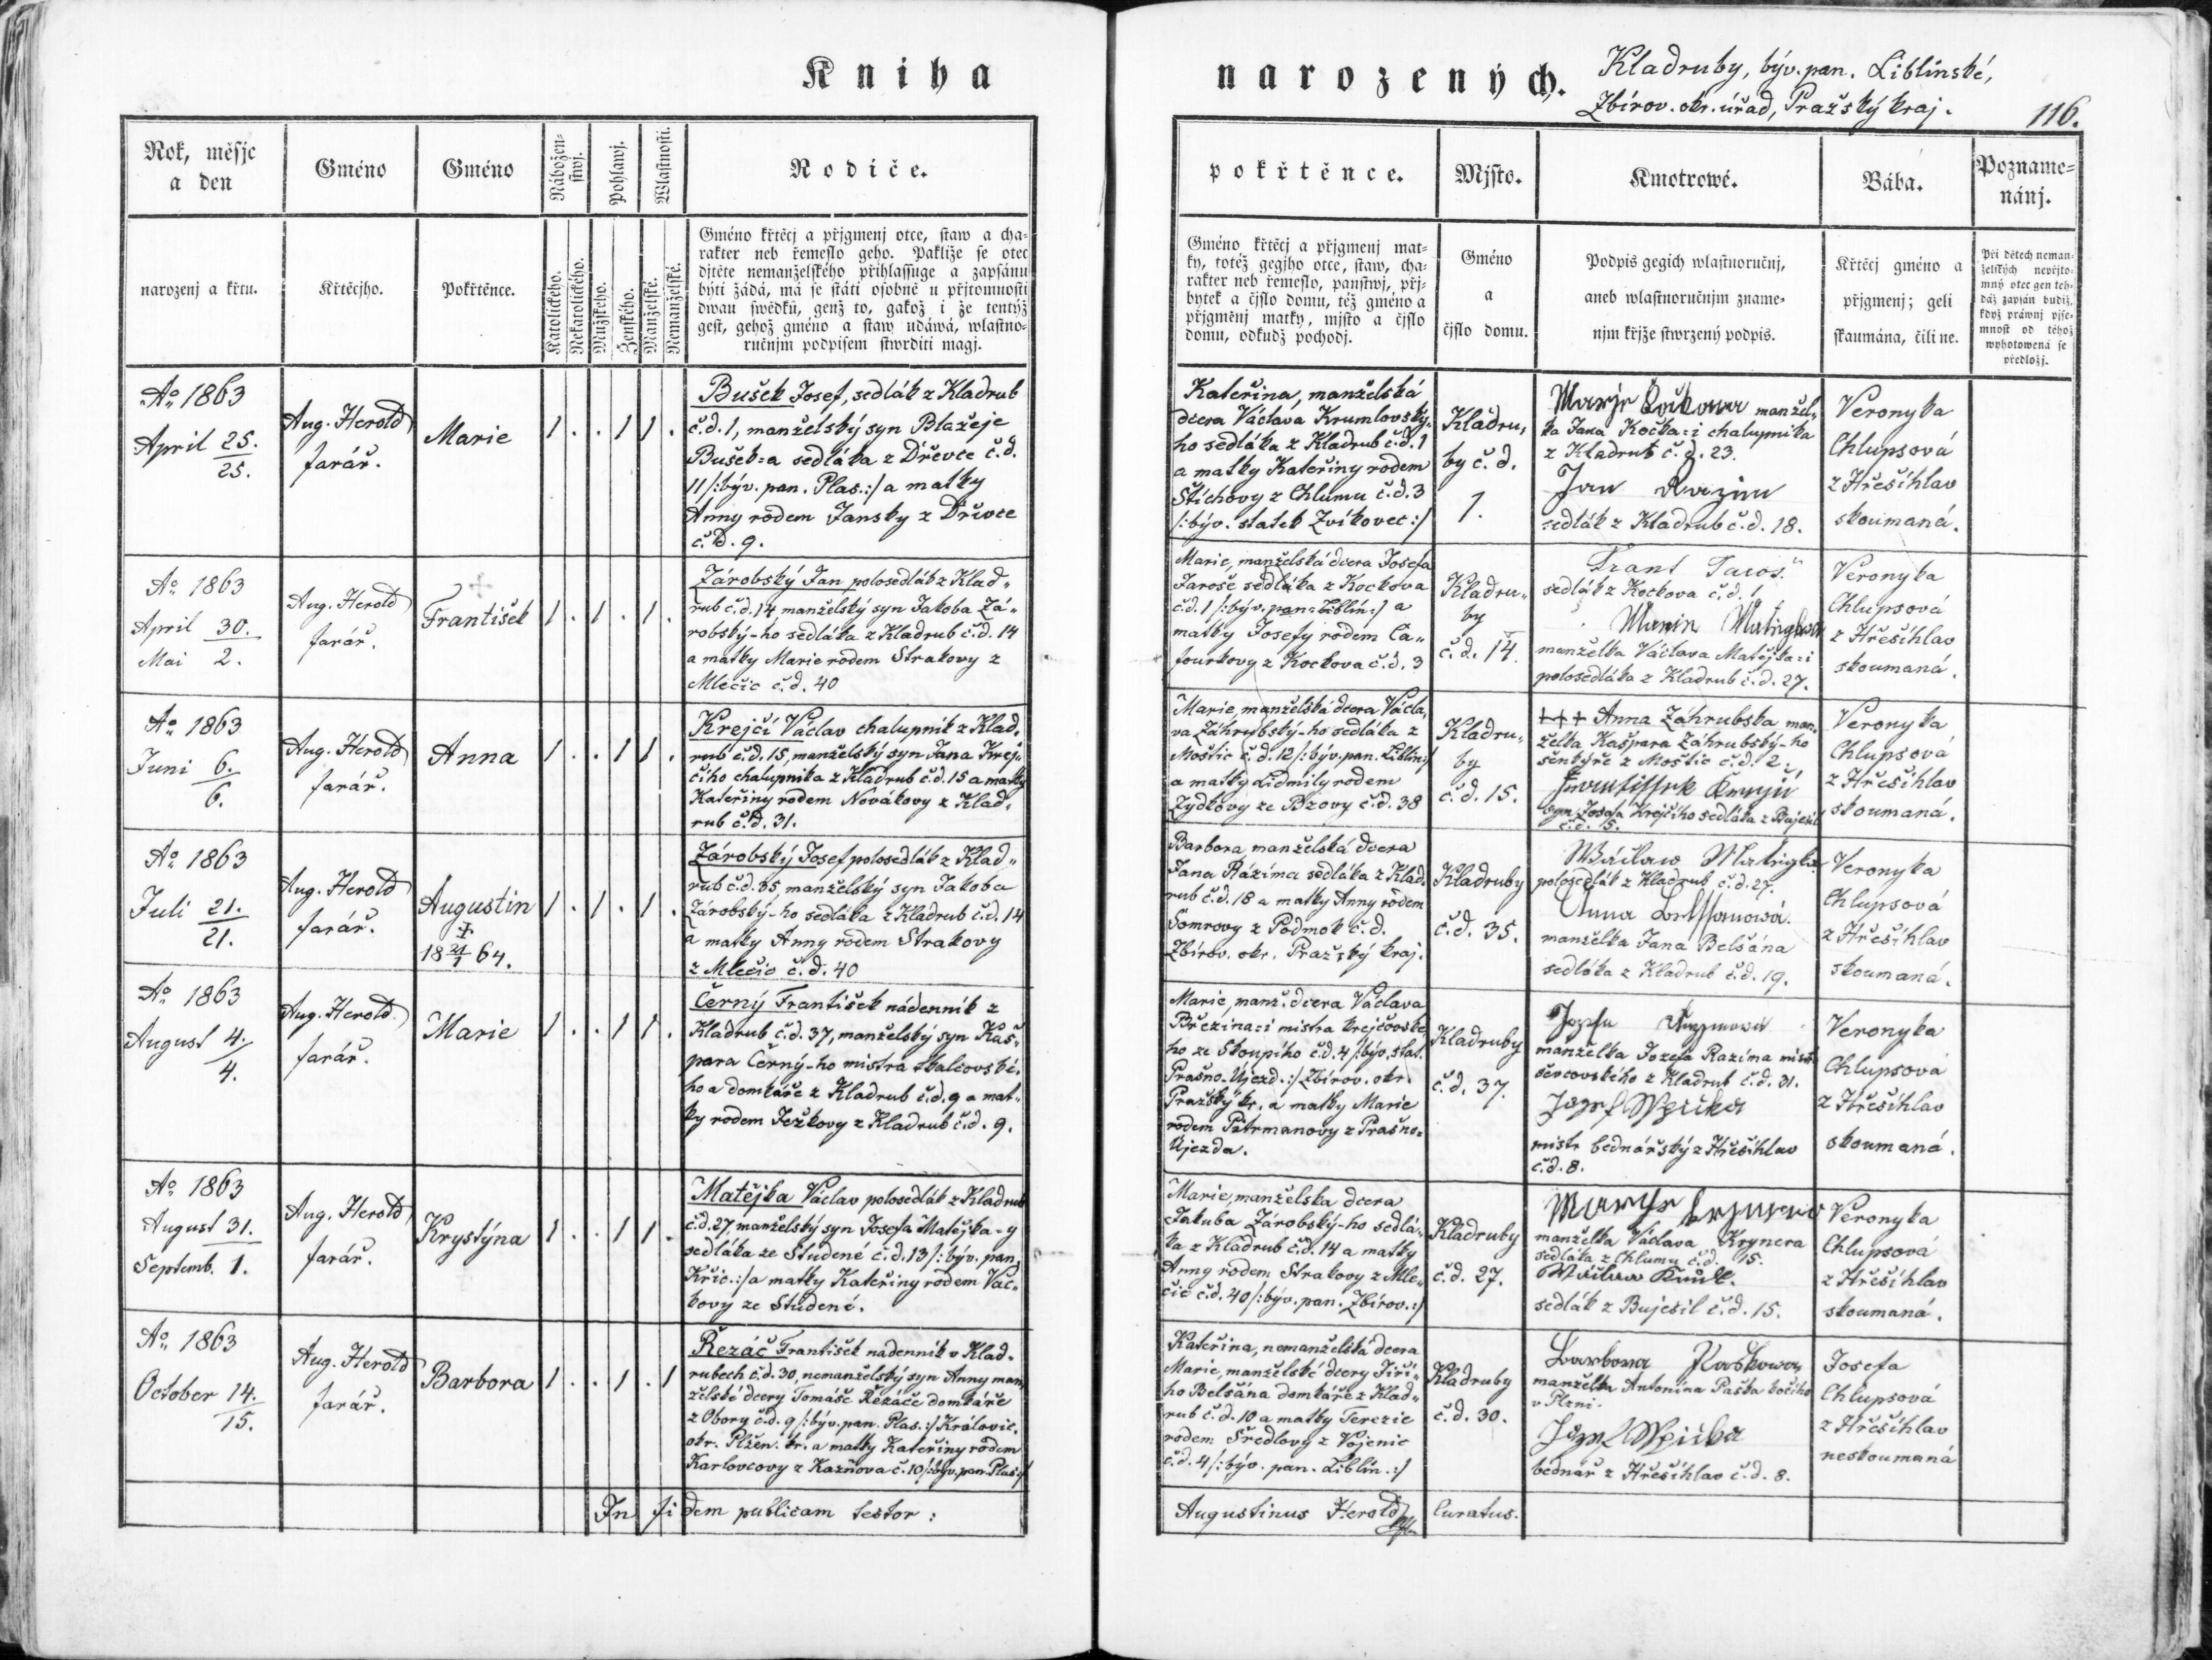 Kniha
narozených.
Kladruby, býv. pan. Liblínské,
Zbírov. okr. úřad, Pražský kraj.
116.
Rok, měsjc
a den
Gméno
Gméno
Nábožen=
stwj.
Pohlawj.
Wlastnosti.
Rodiče.
narozenj a křtu.
Křtěcjho.
Pokřtěnce.
Katolického.
Nekatolického.
Mužského.
Ženského.
Manželské.
Nemanželské.
Gméno křtěcj a přjgmenj otce, staw a cha=
rakter neb řemeslo geho. Pakliže se otec
djtěte nemanželského přihlassuge a zapsánu
býti žádá, má se státi osobně u přjtomnosti
dwau swědků, genž to, gakož i že tentýž
gest, gehož gméno a staw udáwá, wlastno=
ručnjm podpisem stwrditi magj.
Ao 1863
April 25.
25.
Aug. Herold
farář.
Marie
1 . . 1 1 .
Bušek Josef, sedlák z Kladrub
č.d. 1, manželský syn Blažeje
Bušek=a sedláka z Dřevce č.d.
11 /:býv. pan. Plas.:/ a matky
Anny rodem Jansky z Dřevce
č.d. 9.
Ao 1863
April 30.
Mai 2.
Aug. Herold
farář.
František
1 . 1 . 1 .
Zárobský Jan polosedlák z Klad„
rub č.d. 14 manželský syn Jakoba Zá„
robský-ho sedláka z Kladrub č.d. 14
a matky Marie rodem Strakovy z
Mlečic č.d. 40
Ao 1863
Juni 6.
6.
Aug. Herold
farář.
Anna
1 . . 1 1 .
Krejčí Václav chalupník z Klad„
rub č.d. 15, manželský syn Jana Krej„
čího chalupníka z Kladrub č.d. 15 a matky
Kateřiny rodem Novákovy z Klad„
rub č.d. 31.
Ao 1863
Juli 21.
21.
Aug. Herold
farář.
Augustin
†
18 21/1 64.
1 . 1 . 1 .
Zárobský Josef polosedlák z Klad„
rub č.d. 35, manželský syn Jakoba
Zárobský-ho sedláka z Kladrub č.d. 14
a matky Anny rodem Strakovy
z Mlečic č.d. 40
Ao 1863
August 4.
4.
Aug. Herold
farář.
Marie
1 . . 1 1 .
Černý František nádenník z
Kladrub č.d. 37, manželský syn Kaš„
para Černý-ho mistra tkalcovské„
ho a domkáře z Kladrub č.d. 9 a mat„
ky rodem Ježkovy z Kladrub č.d. 9.
Ao 1863
August 31.
Septemb. 1.
Aug. Herold
farář.
Krystýna
1 . . 1 1 .
Matějka Václav polosedlák z Kladrub
č.d. 27 manželský syn Josefa Matějka-y
sedláka ze Studené č.d. 13 /: býv. pan.
Křic.:/ a matky Kateřiny rodem Vac„
kovy ze Studené.
Ao 1863
October 14.
15.
Aug. Herold
farář.
Barbora
1 . . 1 . 1
Řezáč František nadenník v Klad„
rubech č.d. 30, nemanželský syn Anny man„
želské dcery Tomáše Řezáče domkáře
z Obory č.d. 9 /: býv. pan. Plas.:/ Královic.
okr. Plzen. kr. a matky Kateřiny rodem
Karlovcovy z Kaznova č. 10 /: býv. pan. Plas:/
In fidem publicam testor:
pokřtěnce.
Mjsto.
Kmotrowé.
Bába.
Pozname=
nánj.
Gméno křtěcj a přjgmenj mat=
ky, totéž gegjho otce, staw, cha=
rakter neb řemeslo, panstwj, přj=
bytek a čjslo domu, též gméno a
přjgměnj matky, mjsto a čjslo
domu, odkudž pochodj.
Gméno
a
čjslo domu.
Podpis gegich wlastnoručnj,
aneb wlastnoručnjm zname=
njm křjže stwrzený podpis.
Křtěcj gméno a
přjgmenj; geli
skaumána, čili ne.
Při dětech neman=
želských nepřjto=
mný otec gen teh=
dáž zapsán budiž,
když práwnj pjse=
mnost od téhož
wyhotowená se
předložj.
Kateřina, manželská
dcera Václava Krumlovský„
ho sedláka z Kladrub č.d. 1
a matky Kateřiny rodem
Štichovy z Chlumu č.d. 3
/: býv. statek Zvíkovec:/
Kladru„
by č. d.
1.
Marje Kočkowa manžel„
ka Jana Kočka=i chalupníka
z Kladrub č. d. 23.
Jan Razim
sedlák z Kladrub č.d. 18.
Veronyka
Chlupsová
z Hřešihlav
skoumaná.
Marie, manželská dcera Josefa
Jaroše sedláka z Kockova
č.d. 1 /: býv. pan= Liblín:/ a
matky Josefy rodem Ca„
fourkovy z Kockova č.d. 3
Kladru„
by
č. d. 14.
Frant Jaroš
sedlák z Kockova č.d. 1
manželka Václava Matějka=i
polosedláka z Kladrub č.d. 27.
Veronyka
Chlupsová
z Hřešihlav
skoumaná.
Marie, manželská dcera Václa„
va Záhrubský-ho sedláka z
Moštic č.d. 12 /: býv. pan. Liblín:/
a matky Lidmily rodem
Zydkovy ze Bzovy č.d. 38
Kladru„
by
č. d. 15.
+++ Anna Záhrubska man„
želka Kašpara Záhrubský-ho
šenkýře z Moštic č.d. 2.
Frantissek Krejči
syn Josefa Krejčího sedláka z Bujesil
č.d. 15.
Veronyka
Chlupsová
z Hřešihlav
skoumaná.
Barbora manželská dcera
Jana Rázima sedláka z Klad„
rub č.d. 18 a matky Anny rodem
Somrovy z Podmok č.d.
Zbírov. okr. Pražský kraj.
Kladruby
č. d. 35.
Wáclaw Matiegka
polosedlák z Kladrub č.d. 27.
Anna Belssanowá.
manželka Jana Belšána
sedláka z Kladrub č.d. 19.
Veronyka
Chlupsová
z Hřešihlav
skoumaná.
Marie, manž. dcera Václava
Březina=i mistra krejčovské„
ho ze Skoupího č.d. 4 /: býv. stat.
Prašno-Ujezd.:/ Zbírov. okr.
Pražský kr. a matky Marie
rodem Petrmanovy z Prašno=
Ujezda.
Kladruby
č. d. 37.
manželka Jozefa Razima mistr
ševcovského z Kladrub č.d. 31.
Jozef Sspicka
mistr bednářský z Hřešihlav
č.d. 8.
Veronyka
Chlupsova
z Hřešihlav
skoumaná.
Marie, manželska dcera
Jakuba Zárobský-ho sedlá„
ka z Kladrub č.d. 14 a matky
Anny rodem Strakovy z Mle„
čic č.d. 40 /: býv. pan. Zbírov.:/
Kladruby
č. d. 27.
manželka Václava Krynera
sedláka z Chlumu č.d. 15.
sedlák z Bujesil č.d. 15.
Veronyka
Chlupsová
z Hřešihlav
skoumaná.
Kateřina, nemanželská dcera
Marie, manželské dcery Jiří„
ho Belšána domkáře z Klad„
rub č.d. 10 a matky Terezie
rodem Středlovy z Vojenic
č.d. 4 /: býv. pan. Liblín.:/
Kladruby
č. d. 30.
Barbora Paškowa
manželka Antonína Paška kočího
v Plzni.
Jozef Sspicka
bednář z Hřešihlav č.d. 8.
Josefa
Chlupsová
z Hřešihlav
neskoumaná
Augustinus Herold
Curatus.